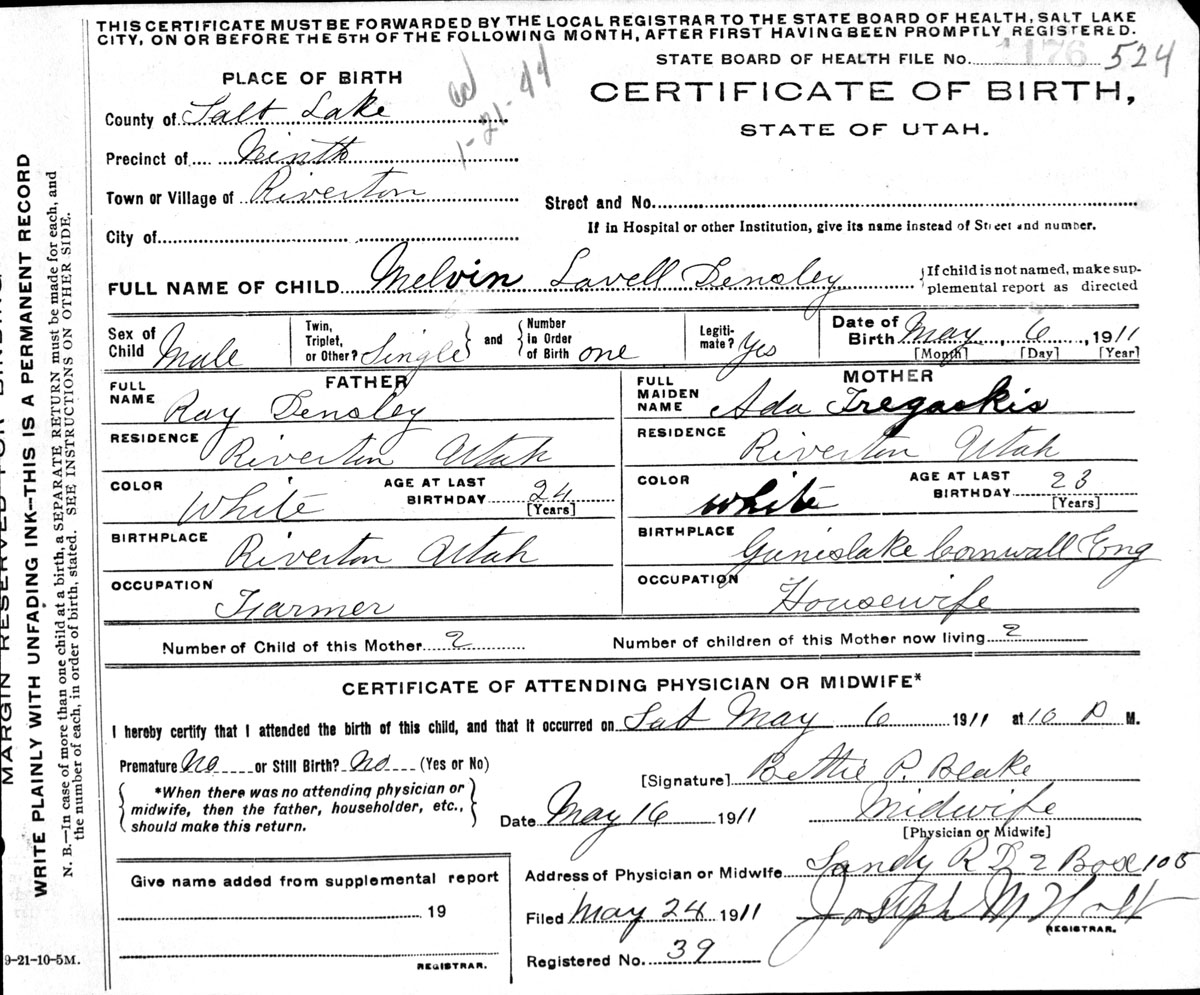 THIS CERTIFICATE MUST BE FORWARDED BY THE LOCAL REGISTRAR TO THE STATE BOARD OF HEALTH, SALT LAKE
CITY, ON OR BEFORE THE 5TH OF THE FOLLOWING MONTH, AFTER FIRST HAVING BEEN PROMPTLY REGISTERED.
STATE BOARD OF HEALTH FILE No. 1176 524
PLACE OF BIRTH
1-21-44
CERTIFICATE OF BIRTH,
STATE OF UTAH.
County of Salt Lake
Precinct of Ninth
Town or Village of Riverton
Street and No.
City of
If in Hospital or other Institution, give its name instead of Street and number.
FULL NAME OF CHILD Melvin Lavell Densley
{If child is not named, make sup-
plemental report as directed
Sex of Child Male
Twin, Triplet, or Other? Single
and
Number in Order of Birth one
Legiti-mate? Yes
Date of Birth May 6, 1911
[Month] [Day] [Year]
FATHER
FULL NAME Ray Densley
RESIDENCE Riverton Utah
COLOR White
AGE AT LAST BIRTHDAY 24
[Years]
BIRTHPLACE Riverton Utah
OCCUPATION Farmer
MOTHER
FULL MAIDEN NAME Ada Tregaskis
RESIDENCE Riverton Utah
COLOR White
AGE AT LAST BIRTHDAY 23
[Years]
BIRTHPLACE Gunislake Cornwall Eng
OCCUPATION Housewife
Number of Child of this Mother 2 Number of children of this Mother now living 2
CERTIFICATE OF ATTENDING PHYSICIAN OR MIDWIFE*
I hereby certify that I attended the birth of this child, and that it occurred on Sat May 6 1911 at 10 P M.
Premature No or Still Birth? No (Yes or No)
*When there was no attending physician or
midwife, then the father, householder, etc.,
should make this return.
[Signature] Bettie P. Blake
Date May 16 1911 Midwife
[Physician or Midwife]
Give name added from supplemental report
19
REGISTRAR.
Address of Physician or Midwife Sandy R D 2 Box 105
Filed May 24 1911 Joseph M Holt
REGISTRAR.
Registered No. 39
9-21-10-5M.
MARGIN RESERVED FOR BINDING
WRITE PLAINLY WITH UNFADING INK—THIS IS A PERMANENT RECORD
N. B.—In case of more than one child at a birth, a SEPARATE RETURN must be made for each, and
the number of each, in order of birth, stated. SEE INSTRUCTIONS ON OTHER SIDE.